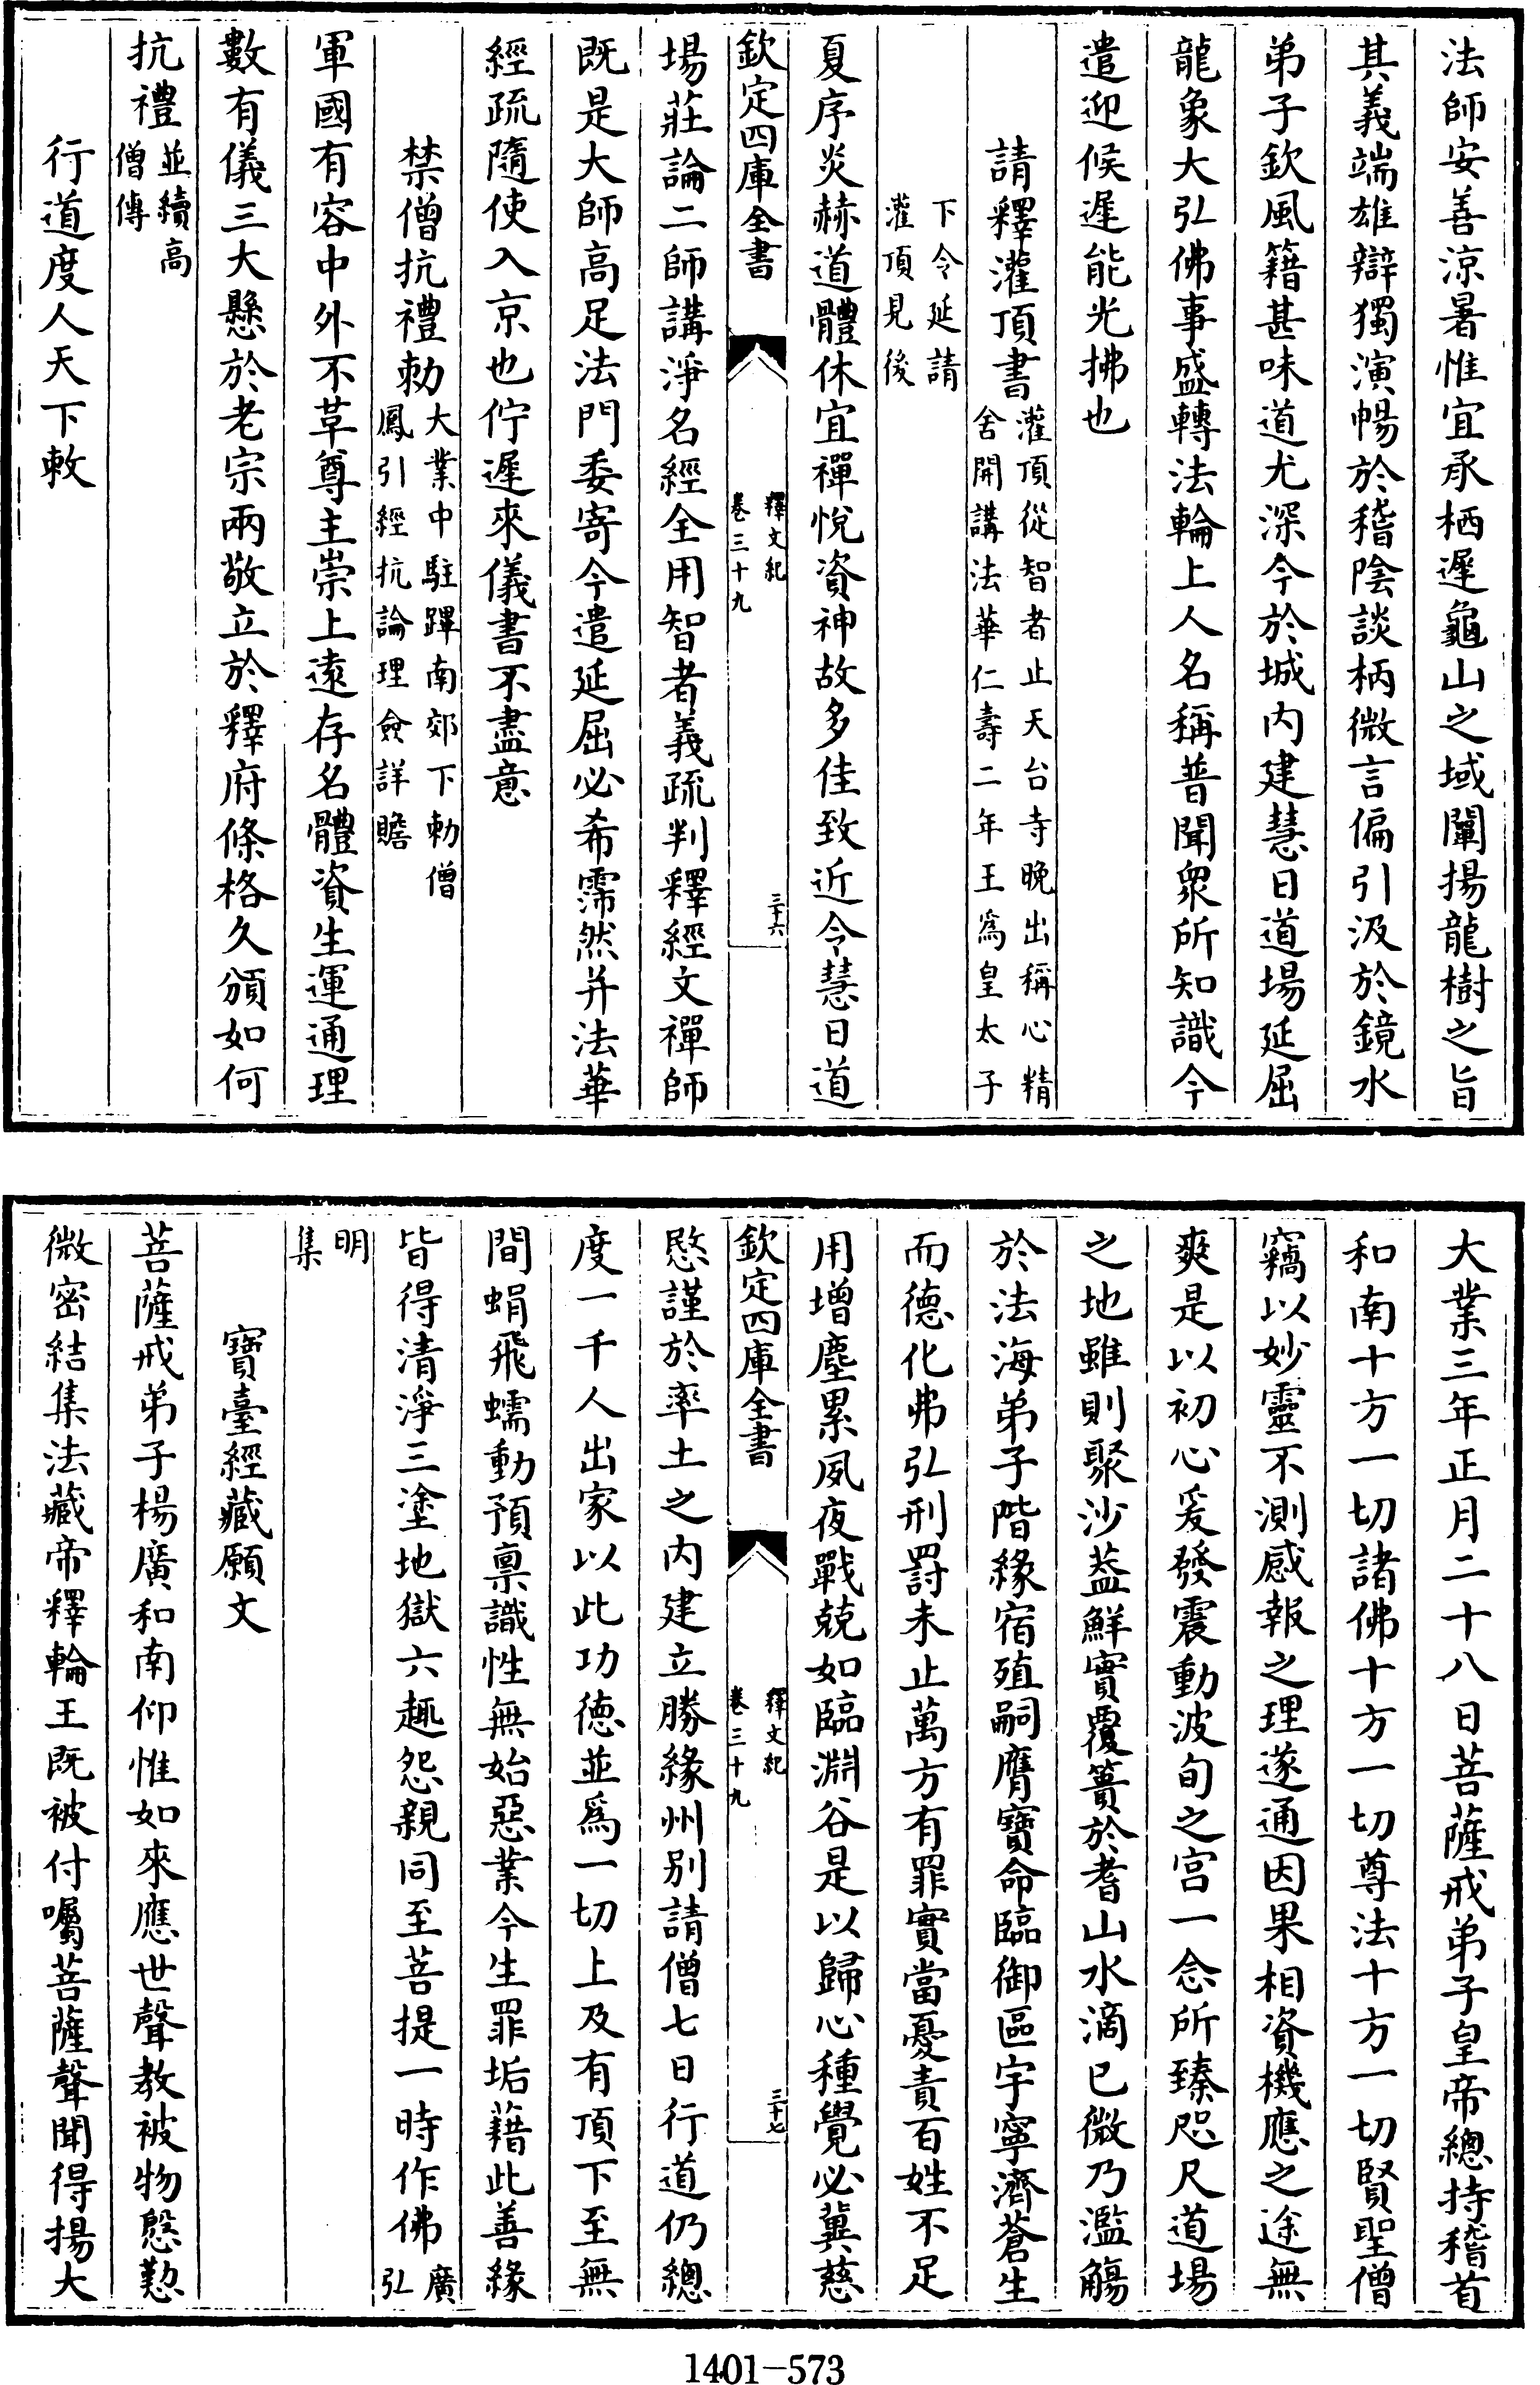 法師安善涼暑惟宜承栖遲龜山之域闡揚龍樹之旨
其義端雄辯獨演暢於稽陰談柄微言偏引汲於鏡水
弟子欽風籍甚味道尤深今於城內建慧日道場延屈
龍象大弘佛事盛轉法輪上人名稱普聞衆所知識今
遣迎候遲能光拂也
請釋灌頂書灌頂從智者止天台寺晚出稱心精
舍開講法華仁壽二年王爲皇太子
下令延請
灌頂見後
夏序炎赫道體休宜禪悅資神故多佳致近令慧日道
欽定四庫全書
釋文紀
卷三十九
三十六
場莊論二師講淨名經全用智者義疏判釋經文禪師
既是大師高足法門委寄今遣延屈必希霈然并法華
經疏隨使入京也佇遲來儀書不盡意
禁僧抗禮勅大業中駐蹕南郊下勅僧
鳳引經抗論理僉詳贍
軍國有容中外不革尊主崇上遠存名體資生運通理
數有儀三大懸於老宗兩敬立於釋府條格久頒如何
抗禮並續高
僧傳
行道度人天下敕
大業三年正月二十八日菩薩戒弟子皇帝總持稽首
和南十方一切諸佛十方一切尊法十方一切賢聖僧
竊以妙靈不測感報之理遂通因果相資機應之途無
爽是以初心爰發震動波旬之宮一念所臻咫尺道場
之地雖則聚沙葢鮮實覆簣於耆山水滴已微乃濫觴
於法海弟子階緣宿殖嗣膺寶命臨御區宇寧濟蒼生
而德化弗弘刑罰未止萬方有罪實當憂責百姓不足
用增塵累夙夜戰兢如臨淵谷是以歸心種覺必冀慈
欽定四庫全書
釋文紀
卷三十九
三十七
愍謹於率土之內建立勝緣州别請僧七日行道仍總
度一千人出家以此功德並爲一切上及有頂下至無
間蜎飛蠕動預稟識性無始惡業今生罪垢藉此善緣
皆得清淨三塗地獄六趣怨親同至菩提一時作佛廣
弘
明
集
寶臺經藏願文
菩薩戒弟子楊廣和南仰惟如來應世聲教被物慇懃
微密結集法藏帝釋輪王既被付囑菩薩聲聞得揚大
1401—573